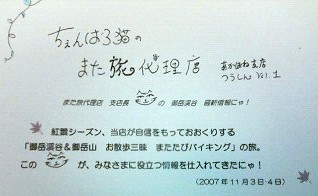 ちぇんばろ猫の
また旅代理店
あかはね支店
つうしん Vol.1
また旅代理店 支店長 の 御岳渓谷 最新情報にゃ!
紅葉シーズン、当店が自信をもっておおくりする
「御岳渓谷&御岳山 お散歩三昧 またたびバイキング」の旅。
この が、みなさまに役立つ情報を仕入れてきたにゃ!
(2007年11月3日・4日)